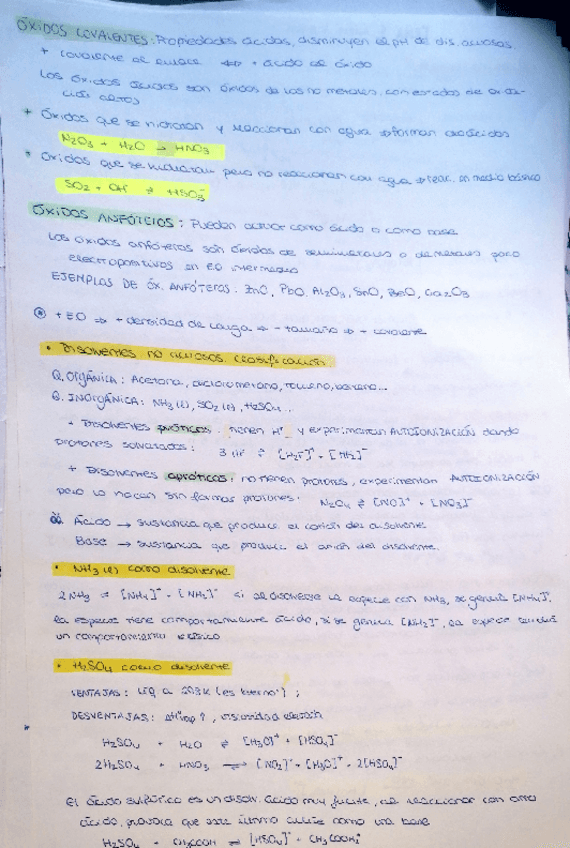 ÓXIDOS COVALENTES: Propiedades ácidas, disminuyen el pH de dis. acuosas.
+ covalente el enlace ⇔ + ácido el óxido
Los óxidos ácidos son óxidos de los no metales, con estados de oxida-
ción altos
+ Óxidos que se hidratan y reaccionan con agua ⇒ forman oxoácidos
N2O5 + H2O → HNO3
+ Óxidos que se hidratan pero no reaccionan con agua ⇒ reac. en medio básico
SO2 + OH- ⇌ HSO3-
ÓXIDOS ANFÓTEROS: Pueden actuar como ácido o como base
Los óxidos anfóteros son óxidos de semimetales o de metales poco
electropositivos en EO intermedio
EJEMPLOS DE ÓX. ANFÓTEROS: ZnO, PbO, Al2O3, SnO, BeO, Ga2O3
+ EO ⇒ + densidad de carga ⇒ - tamaño ⇒ + covalente
• Disolventes no acuosos. Clasificación
Q. ORGÁNICA: Acetona, diclorometano, tolueno, benceno...
Q. INORGÁNICA: NH3 (l), SO2 (l), H2SO4...
+ Disolventes próticos: tienen H+ y experimentan AUTOIONIZACIÓN dando
protones solvatados: 3 HF ⇌ [H2F]+ + [HF2]-
+ Disolventes apróticos: no tienen protones, experimentan AUTOIONIZACIÓN
pero lo hacen sin formar protones. N2O4 ⇌ [NO]+ + [NO3]-
Ácido → sustancia que produce el catión del disolvente
Base → sustancia que produce el anión del disolvente.
• NH3 (l) como disolvente
2NH3 ⇌ [NH4]+ + [NH2]- si al disolverse la especie con NH3, se genera [NH4]+,
la especie tiene comportamiento ácido, si se genera [NH2]-, la especie tendrá
un comportamiento básico
• H2SO4 como disolvente
VENTAJAS: LIQ a 283K (es bueno!);
DESVENTAJAS: ΔHvap ↑, viscosidad elevada
H2SO4 + H2O ⇌ [H3O]+ + [HSO4]-
2H2SO4 + HNO3 ⇌ [NO2]+ + [H3O]+ + 2[HSO4]-
El ácido sulfúrico es un disolv. ácido muy fuerte, al reaccionar con otro
ácido, provoca que este último actúe como una base
H2SO4 + CH3COOH ⇌ [HSO4]- + CH3COOH2+